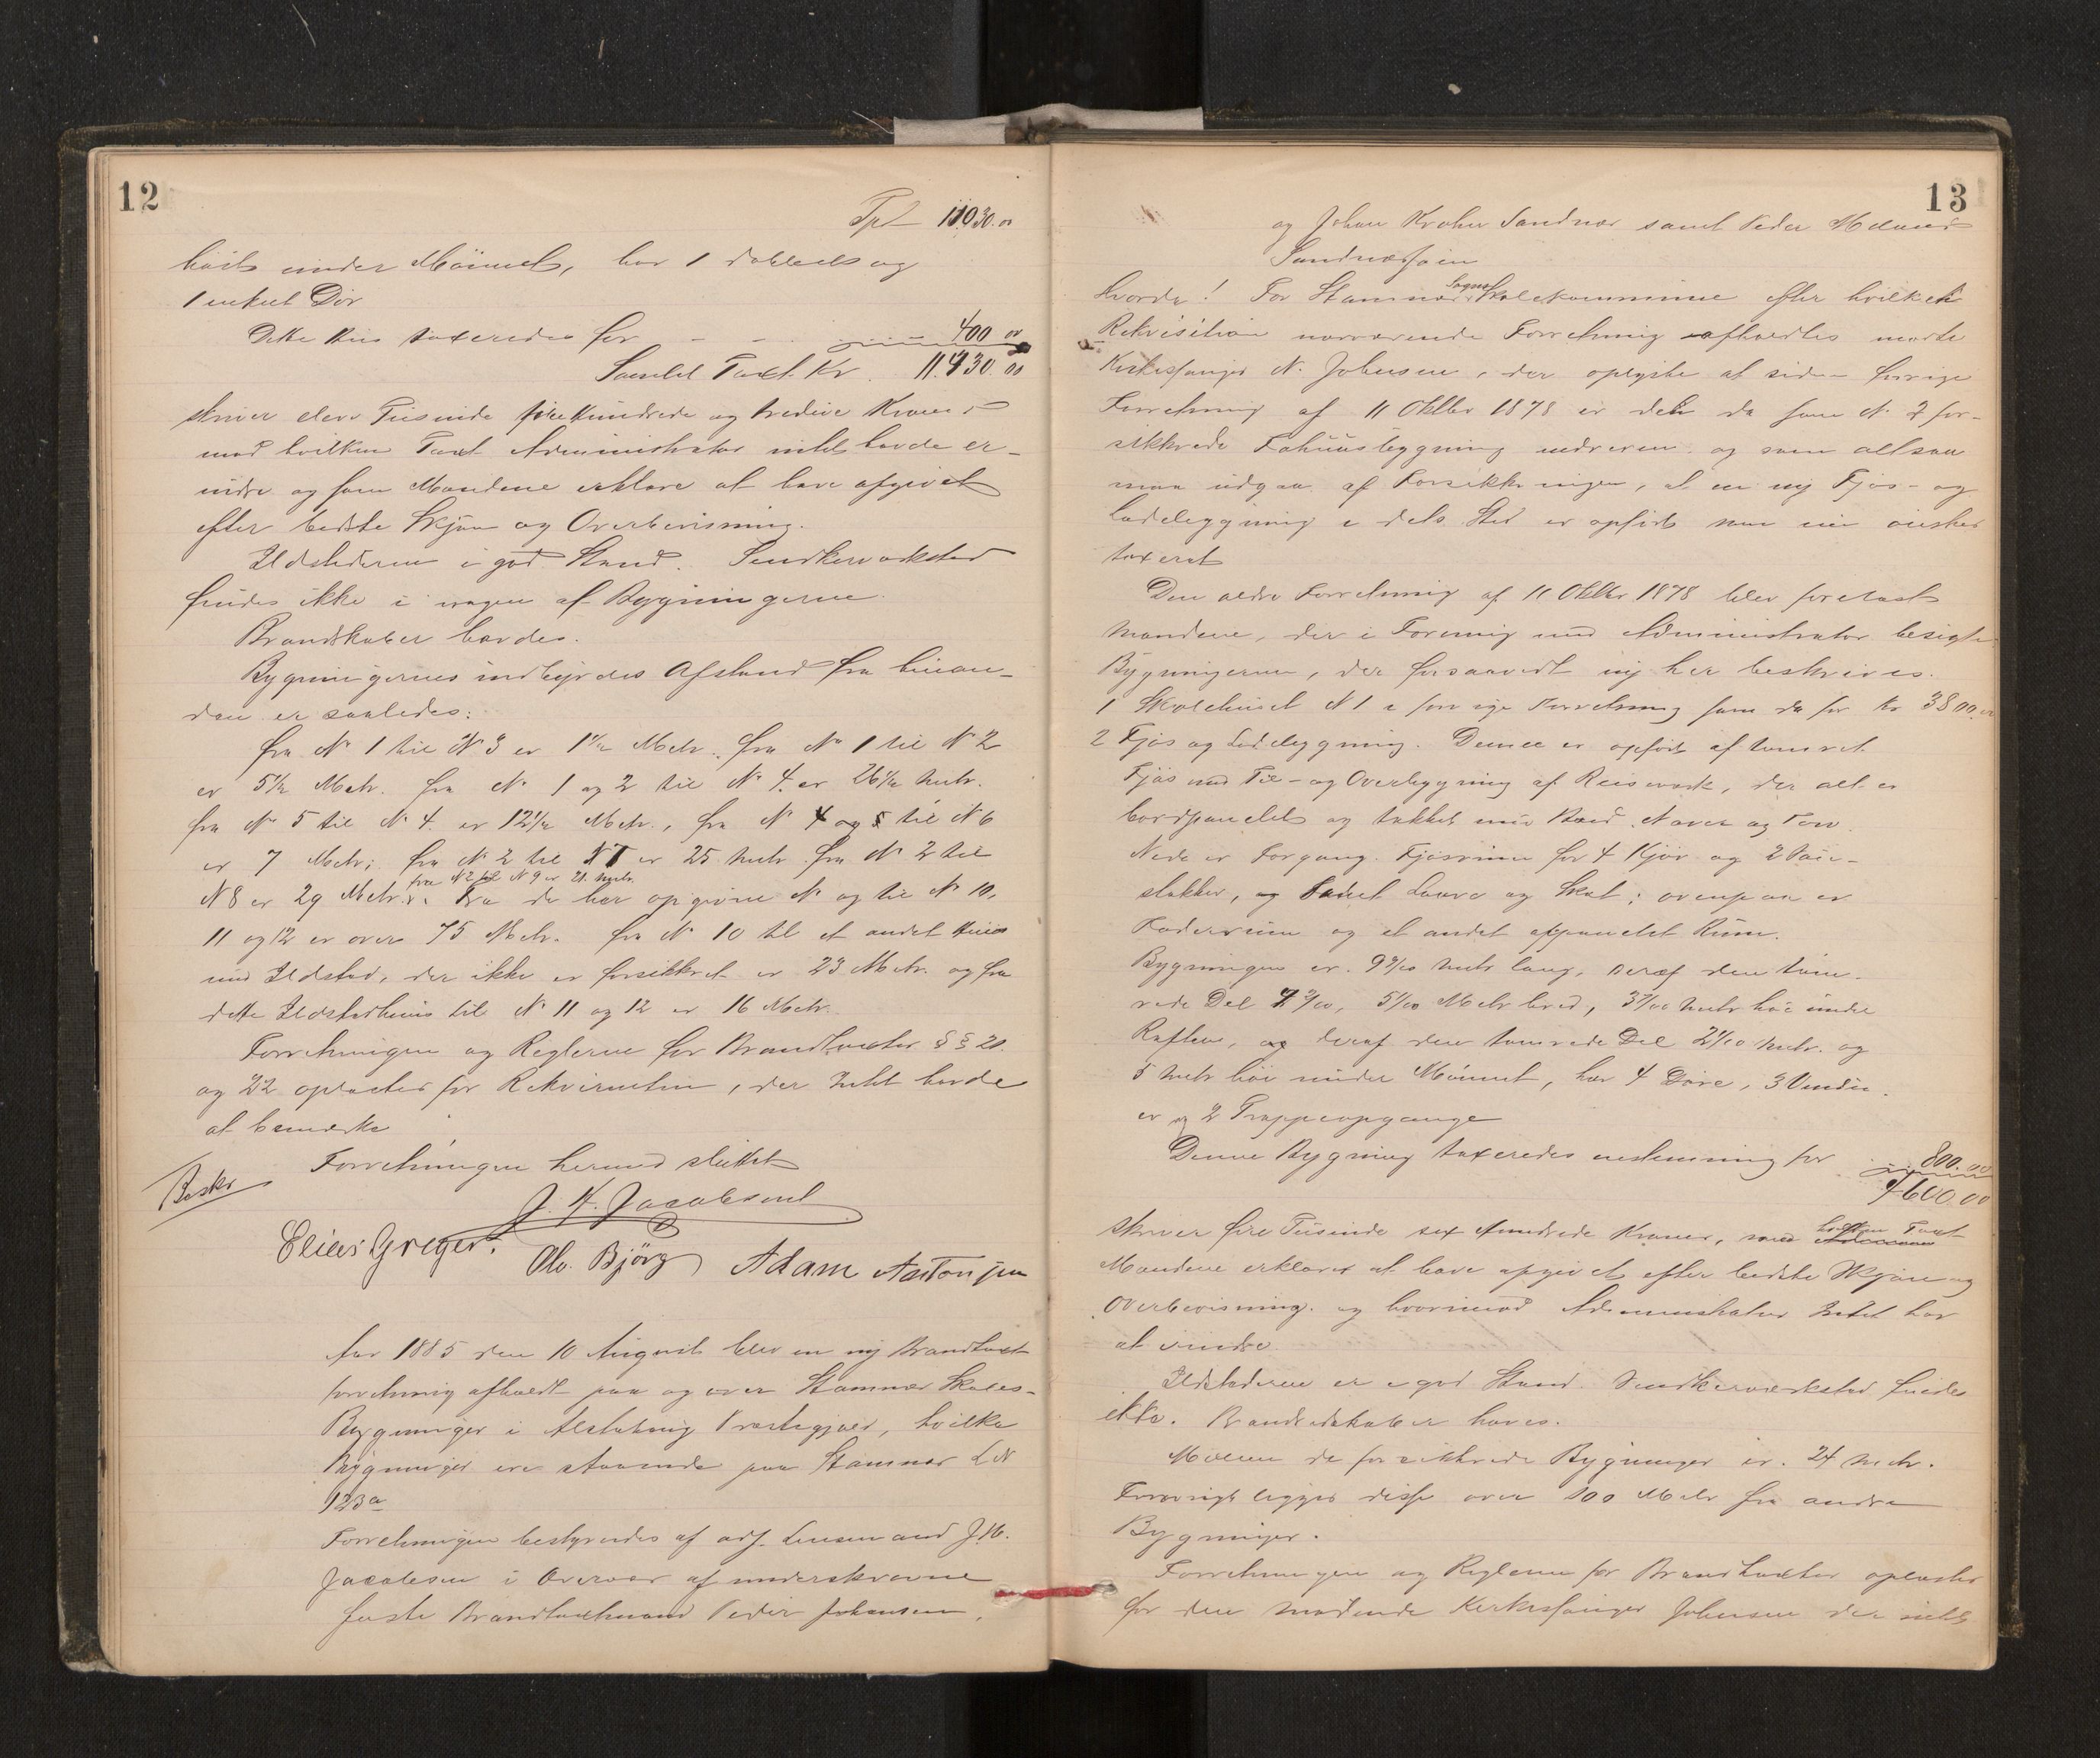 12
Tpt 11030.00
høit under Mønnet, har 1 dobbelt og
1 enkelt Dør
Dette Huus taxeredes for - - 400 00
Samlet Taxt Kr. 11.430.00
skriver elleve Tusinde fire Hundrede og tredive Kroner
mod hvilken Taxt Administrator intet havde er-
indre og som Mændene erklære at have afgivet
efter bedste Skjøn og Overbevisning.
Ildstederne i god Stand. Snedkerværksted
findes ikke i nogen af Bygningerne.
Brandskaber havdes.
Bygningernes indbyrdes Afstand fra hinan-
den er saaledes:
fra No 1 til No 3 er 1 1/2 Metr. fra No 1 til No 2
er 5 1/2 Metr. fra No 1 og 2 til No 4. er 26 1/2 Metr.
fra No 5 til No 4. er 12 1/2 Metr., fra No 4 og 5 til No 6
er 7 Metr; fra No 2 til N 7 er 25 Metr fra No 2 til
fra N 2 til N 9 er 21. Metr.
N 8 er 29 Metr. Fra de her opgivne No og til No 10,
11 og 12 er over 75 Metr. fra No 10 til et andet Huus
med Ildsted, der ikke er forsikkret er 23 Metr. og fra
dette Ildstedhuus til No 11 og 12 er 16 Metr.
Forretningen og Reglerne for Brandtaxter §§ 20.
og 22 oplæstes for Rekvirenten, der Intet havde
at bemærke
Forretningen hermed sluttet
Beskr
J. H. Jacobsen
Elias Greger. Ole. Bjørg Adam Antonsen
Aar 1885 den 10 August blev en ny Brandtaxt
forretning afholdt paa og over Stamnes Skoles-
Bygninger i Alstahaug Præstegjæld, hvilke
Bygninger ere staaende paa Stamnes L N
123a
Forretningen bestyredes af adj. Lensmand J. H.
Jacobsen i Overvær af underskrevne
faste Brandtaxtmænd Peder Johansen,
13
og Johan Sandnes samt Peder
Hvorda! For Stamnes Sogns Skolekommune efter hvilkens
Rekvisition nærværende Forretning afholdtes mødte
Kirkesanger N. Johnsen, der oplyste at siden forrige
Forretning af 11 Oktbr 1878 er den da som N. 2 for-
sikkrede Fæhuusbygning nedreven og som altsaa
maa udgaa af Forsikkringen, at en ny Fjøs- og
Ladebygning i dets Sted er opført som nu ønskes
taxeret
Den ældre Forretning af 11 Oktbr 1878 blev forelæst
Mændene, der i Forening med Administrator besigte
Bygningerne, der forsaavidt ny her beskrives.
1 Skolehuset N 1 i forrige Forretning som da for Kr 3800.00
2 Fjøs og Ladebygning. Denne er opført af tømret
Fjøs med Til- og Overbygning af Reisværk, der alt er
bordpanelet og tækket med Bord Næver og Torv.
Nede er Forgang. Fjøsrum for 4 Kjør og 2
stakker, og Ladet Laave og Skot; ovenpaa er
Foderrum og et andet oppanelet Rum.
Bygningen er. 9 9/10 Metr lang, deraf den tøm-
rede Del 7 3/10, 5 1/10 Metr bred, 3 7/10 Metr høi under
Raften, og deraf den tømrede Del 2 1/10 Metr. og
5 Metr høi under Mønnet, har 4 Døre, 3 Vindu
er og 2 Trappeopgange
Denne Bygning taxeredes enstemmig for 800.00
4600.00
skriver fire Tusinde sex Hundrede Kroner, hvilken Taxt
Mændene erklærer at have afgivet efter bedste Skjøn og
Overbevisning. og hvorimod Administrator Intet har
at erindre
Ildstederne er i god Stand. Snedkerværksted findes
ikke. Brandredskaber haves.
Mellem de forsikkrede Bygninger er. 24 Metr.
Forøvrigt ligger disse over 100 Metr fra andre
Bygninger.
Forretningen og Reglerne for Brandtaxter oplæstes
for den mødende Kirkesanger Johnsen der intet